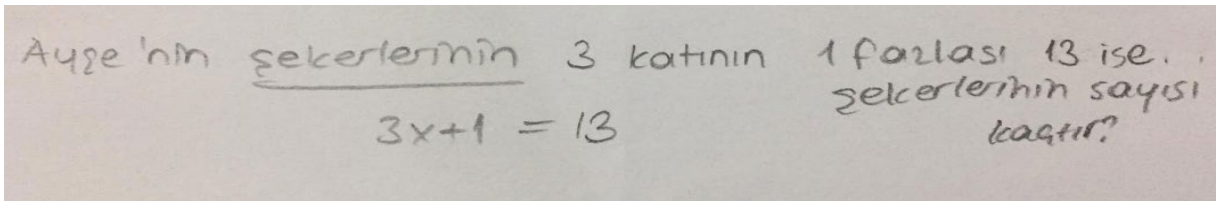 Ayşe'nin şekerlerinin 3 katının 1 fazlası 13 ise.
şekerlerinin sayısı
kaçtır?
3x+1 = 13